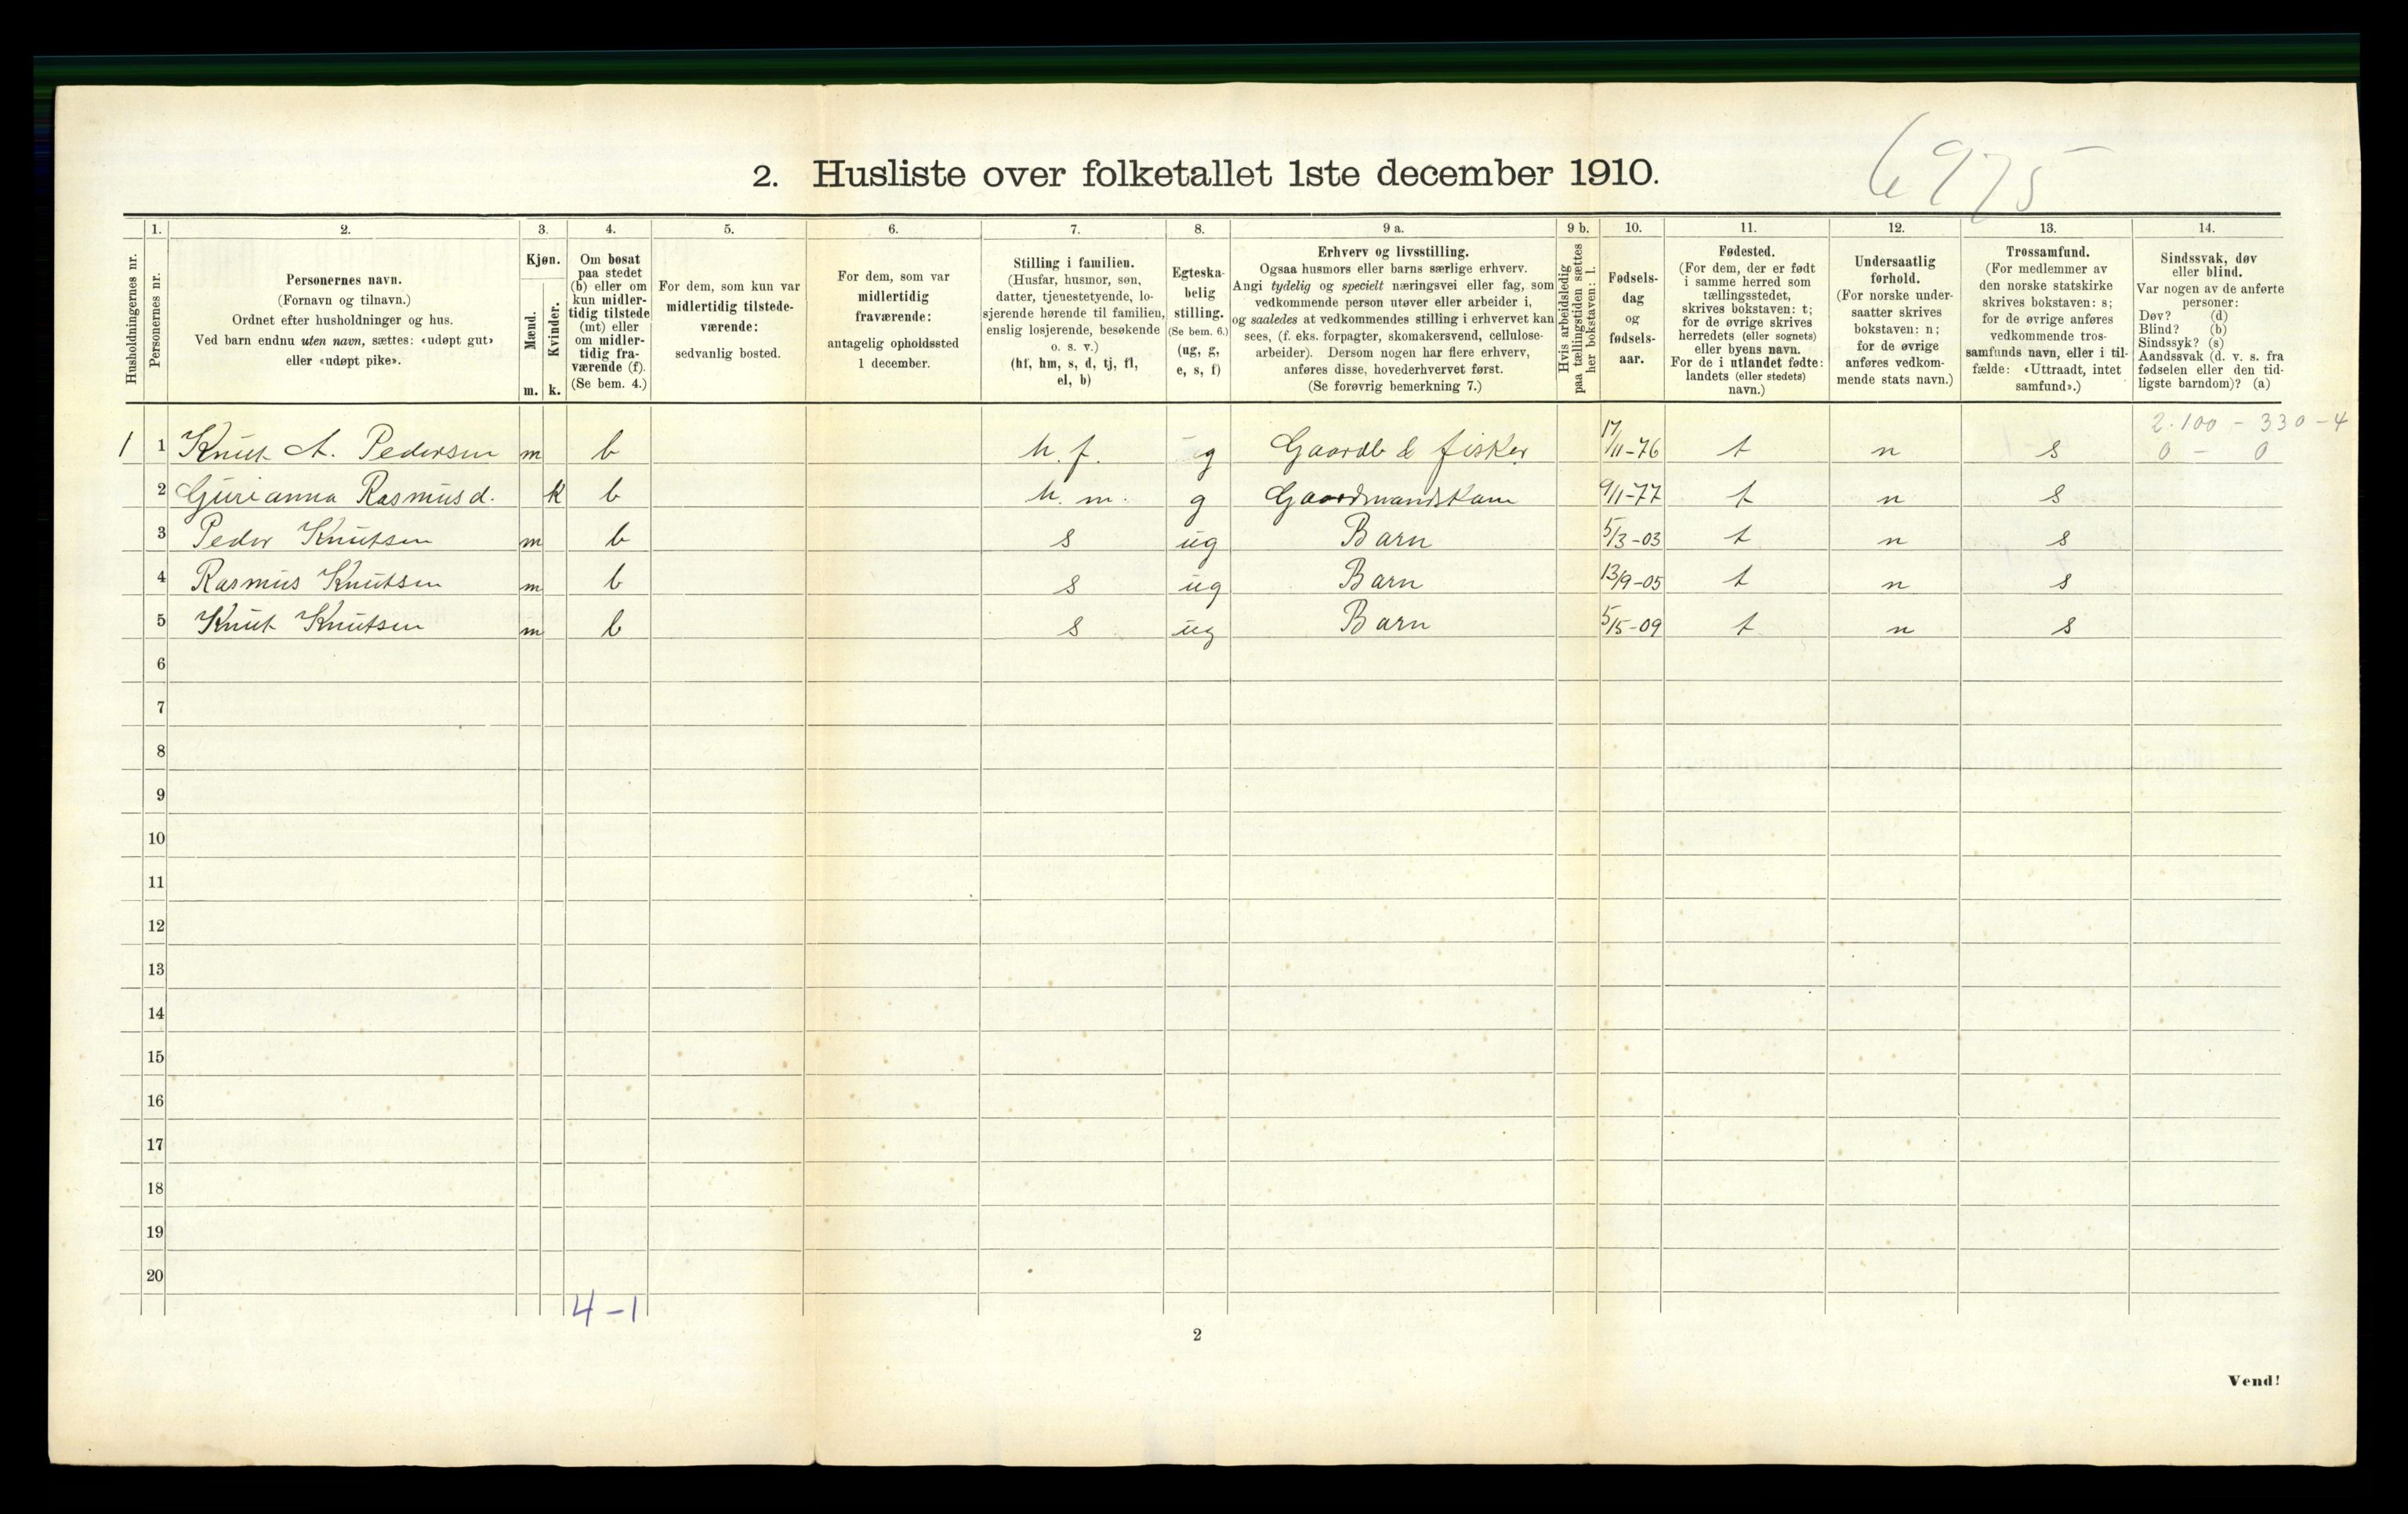 6975
2. Husliste over folketallet 1ste december 1910.
Husholdningernes nr.
1.
Personernes nr.
2.
Personernes navn.
(Fornavn og tilnavn.)
Ordnet efter husholdninger og hus.
Ved barn endnu uten navn, sættes: «udøpt gut»
eller «udøpt pike».
3.
Kjøn.
Mænd.
Kvinder.
m. k.
4.
Om bosat
paa stedet
(b) eller om
kun midler-
tidig tilstede
(mt) eller
om midler-
tidig fra-
værende (f).
(Se bem. 4.)
5.
For dem, som kun var
midlertidig tilstede-
værende:
sedvanlig bosted.
6.
For dem, som var
midlertidig
fraværende:
antagelig opholdssted
1 december.
7.
Stilling i familien.
(Husfar, husmor, søn,
datter, tjenestetyende, lo-
sjerende hørende til familien,
enslig losjerende, besøkende
o. s. v.)
(hf, hm, s, d, tj, fl,
el, b)
8.
Egteska-
belig
stilling.
(Se bem. 6.)
(ug, g,
e, s, f)
9 a.
Erhverv og livsstilling.
Ogsaa husmors eller barns særlige erhverv.
Angi tydelig og specielt næringsvei eller fag, som
vedkommende person utøver eller arbeider i,
og saaledes at vedkommendes stilling i erhvervet kan
sees, (f. eks. forpagter, skomakersvend, cellulose-
arbeider). Dersom nogen har flere erhverv,
anføres disse, hovederhvervet først.
(Se forøvrig bemerkning 7.)
9 b.
Hvis arbeidsledig
paa tællingstiden sættes
her bokstaven: l.
10.
Fødsels-
dag
og
fødsels-
aar.
11.
Fødested.
(For dem, der er født
i samme herred som
tællingsstedet,
skrives bokstaven: t;
for de øvrige skrives
herredets (eller sognets)
eller byens navn.
For de i utlandet fødte:
landets (eller stedets)
navn.)
12.
Undersaatlig
forhold.
(For norske under-
saatter skrives
bokstaven: n;
for de øvrige
anføres vedkom-
mende stats navn.)
13.
Trossamfund.
(For medlemmer av
den norske statskirke
skrives bokstaven: s;
for de øvrige anføres
vedkommende tros-
samfunds navn, eller i til-
fælde: «Uttraadt, intet
samfund».)
14.
Sindssvak, døv
eller blind.
Var nogen av de anførte
personer:
Døv? (d)
Blind? (b)
Sindssyk? (s)
Aandssvak (d. v. s. fra
fødselen eller den tid-
ligste barndom)? (a)
2.100 - 330 - 4
1 1 Knut A. Pedersen m b h. f. g Gaardb & fisker 17/11-76 t n s 0 - 0
2 Gurianna Rasmusd. k b h. m. g Gaardmandskone 9/11-77 t n s
3 Peder Knutsen m b s ug Barn 5/3-03 t n s
4 Rasmus Knutsen m b s ug Barn 13/9-05 t n s
5 Knut Knutsen m b s ug Barn 5/15-09 t n s
6
7
8
9
10
11
12
13
14
15
16
17
18
19
20
4-1
2
Vend!